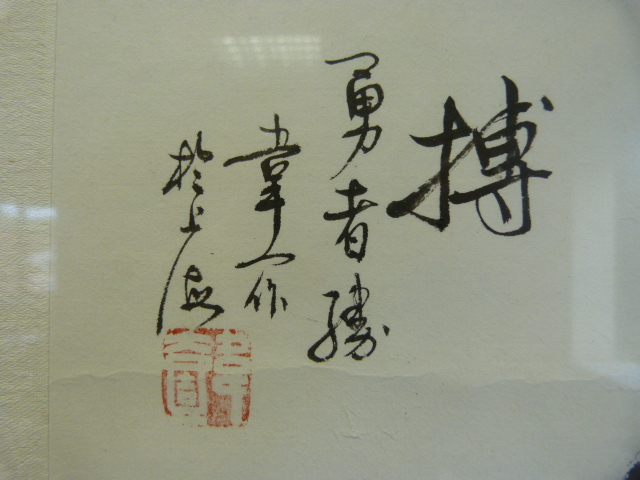 搏
勇者勝
韋一作
於上海